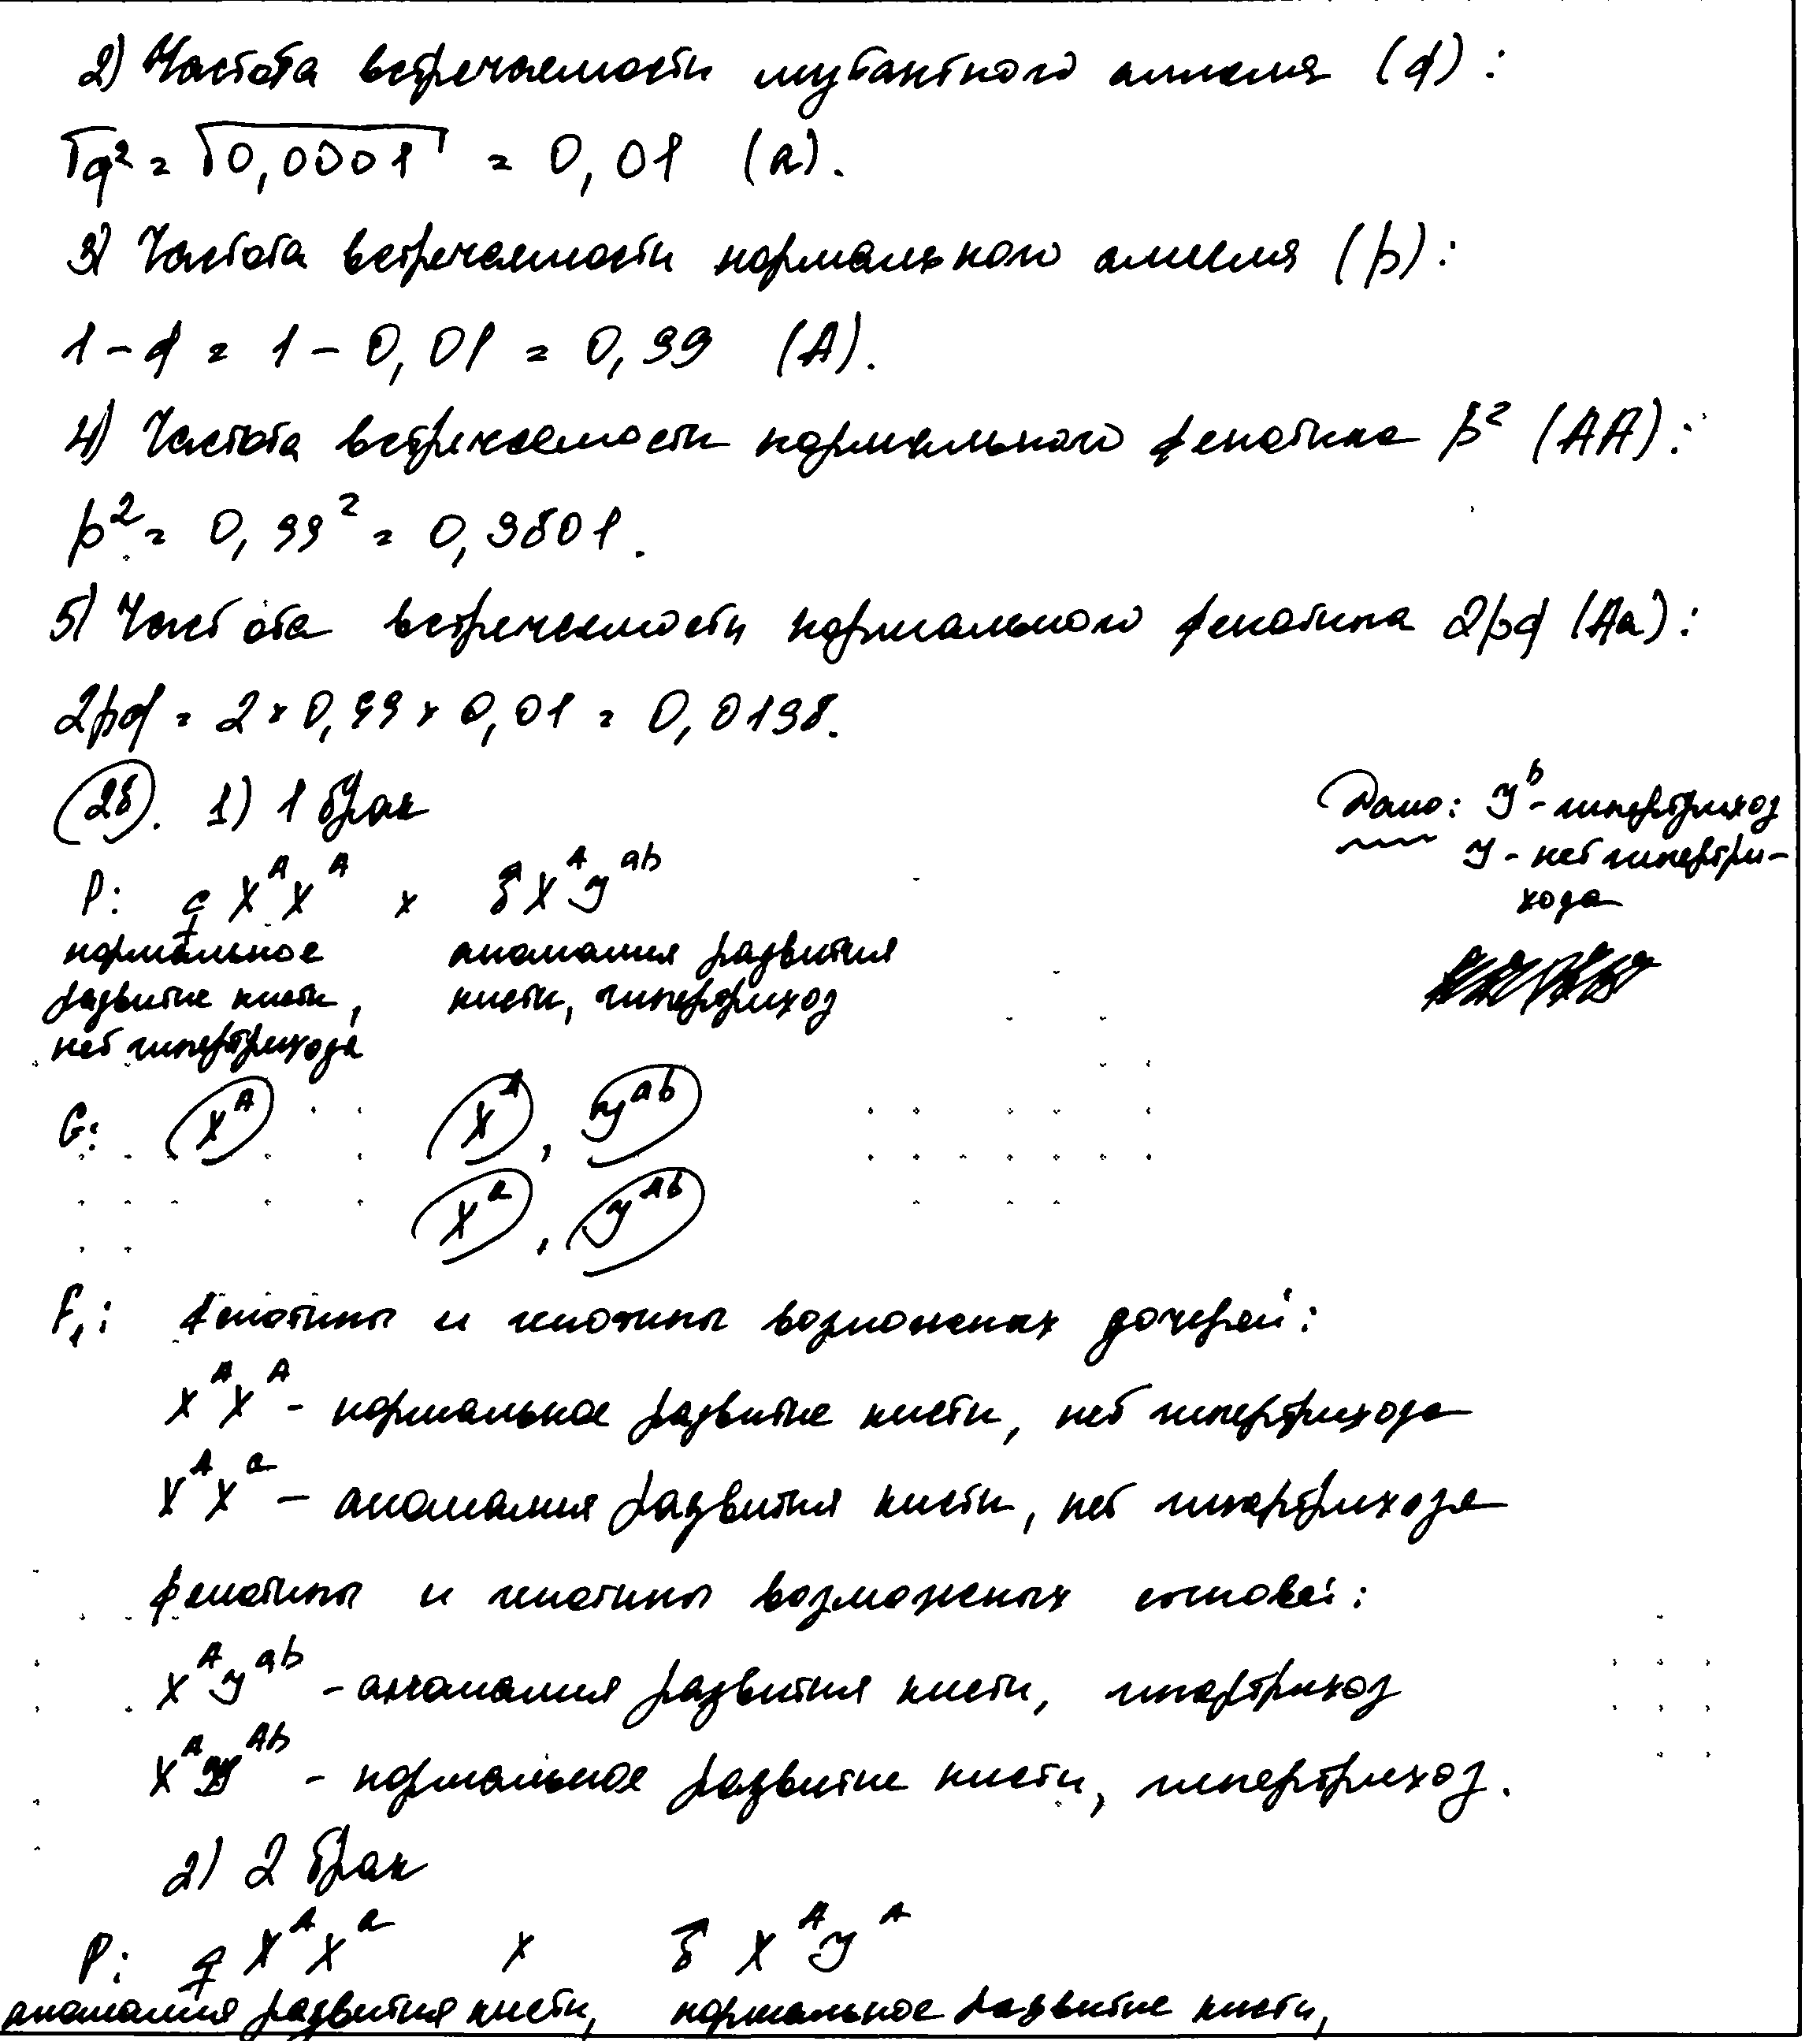 2) Частота встречаемости мутантного аллеля (q):
√q² = √0,0001 = 0,01 (a).
3) Частота встречаемости нормального аллеля (p):
1 - q = 1 - 0,01 = 0,99 (A).
4) Частота встречаемости нормального фенотипа p² (AA):
p² = 0,99² = 0,9801.
5) Частота встречаемости нормального фенотипа 2pq (Aa):
2pq = 2 × 0,99 × 0,01 = 0,0198.
28. 1) 1 брак
Дано: Y^b - гипертрихоз
Y - нет гипертри-
хоза
P: ♀ X^A X^A × ♂ X^A Y^ab
нормальное аномалия развития
развитие кисти, кисти, гипертрихоз
нет гипертрихоза
G: X^A X^A, Y^ab
X^a, Y^Ab
F₁: фенотипы и генотипы возможных дочерей:
X^A X^A - нормальное развитие кисти, нет гипертрихоза
X^A X^a - аномалия развития кисти, нет гипертрихоза
фенотипы и генотипы возможных сыновей:
X^A Y^ab - аномалия развития кисти, гипертрихоз
X^A Y^Ab - нормальное развитие кисти, гипертрихоз.
2) 2 брак
P: ♀ X^A X^a × ♂ X^A Y^A
аномалия развития кисти, нормальное развитие кисти,